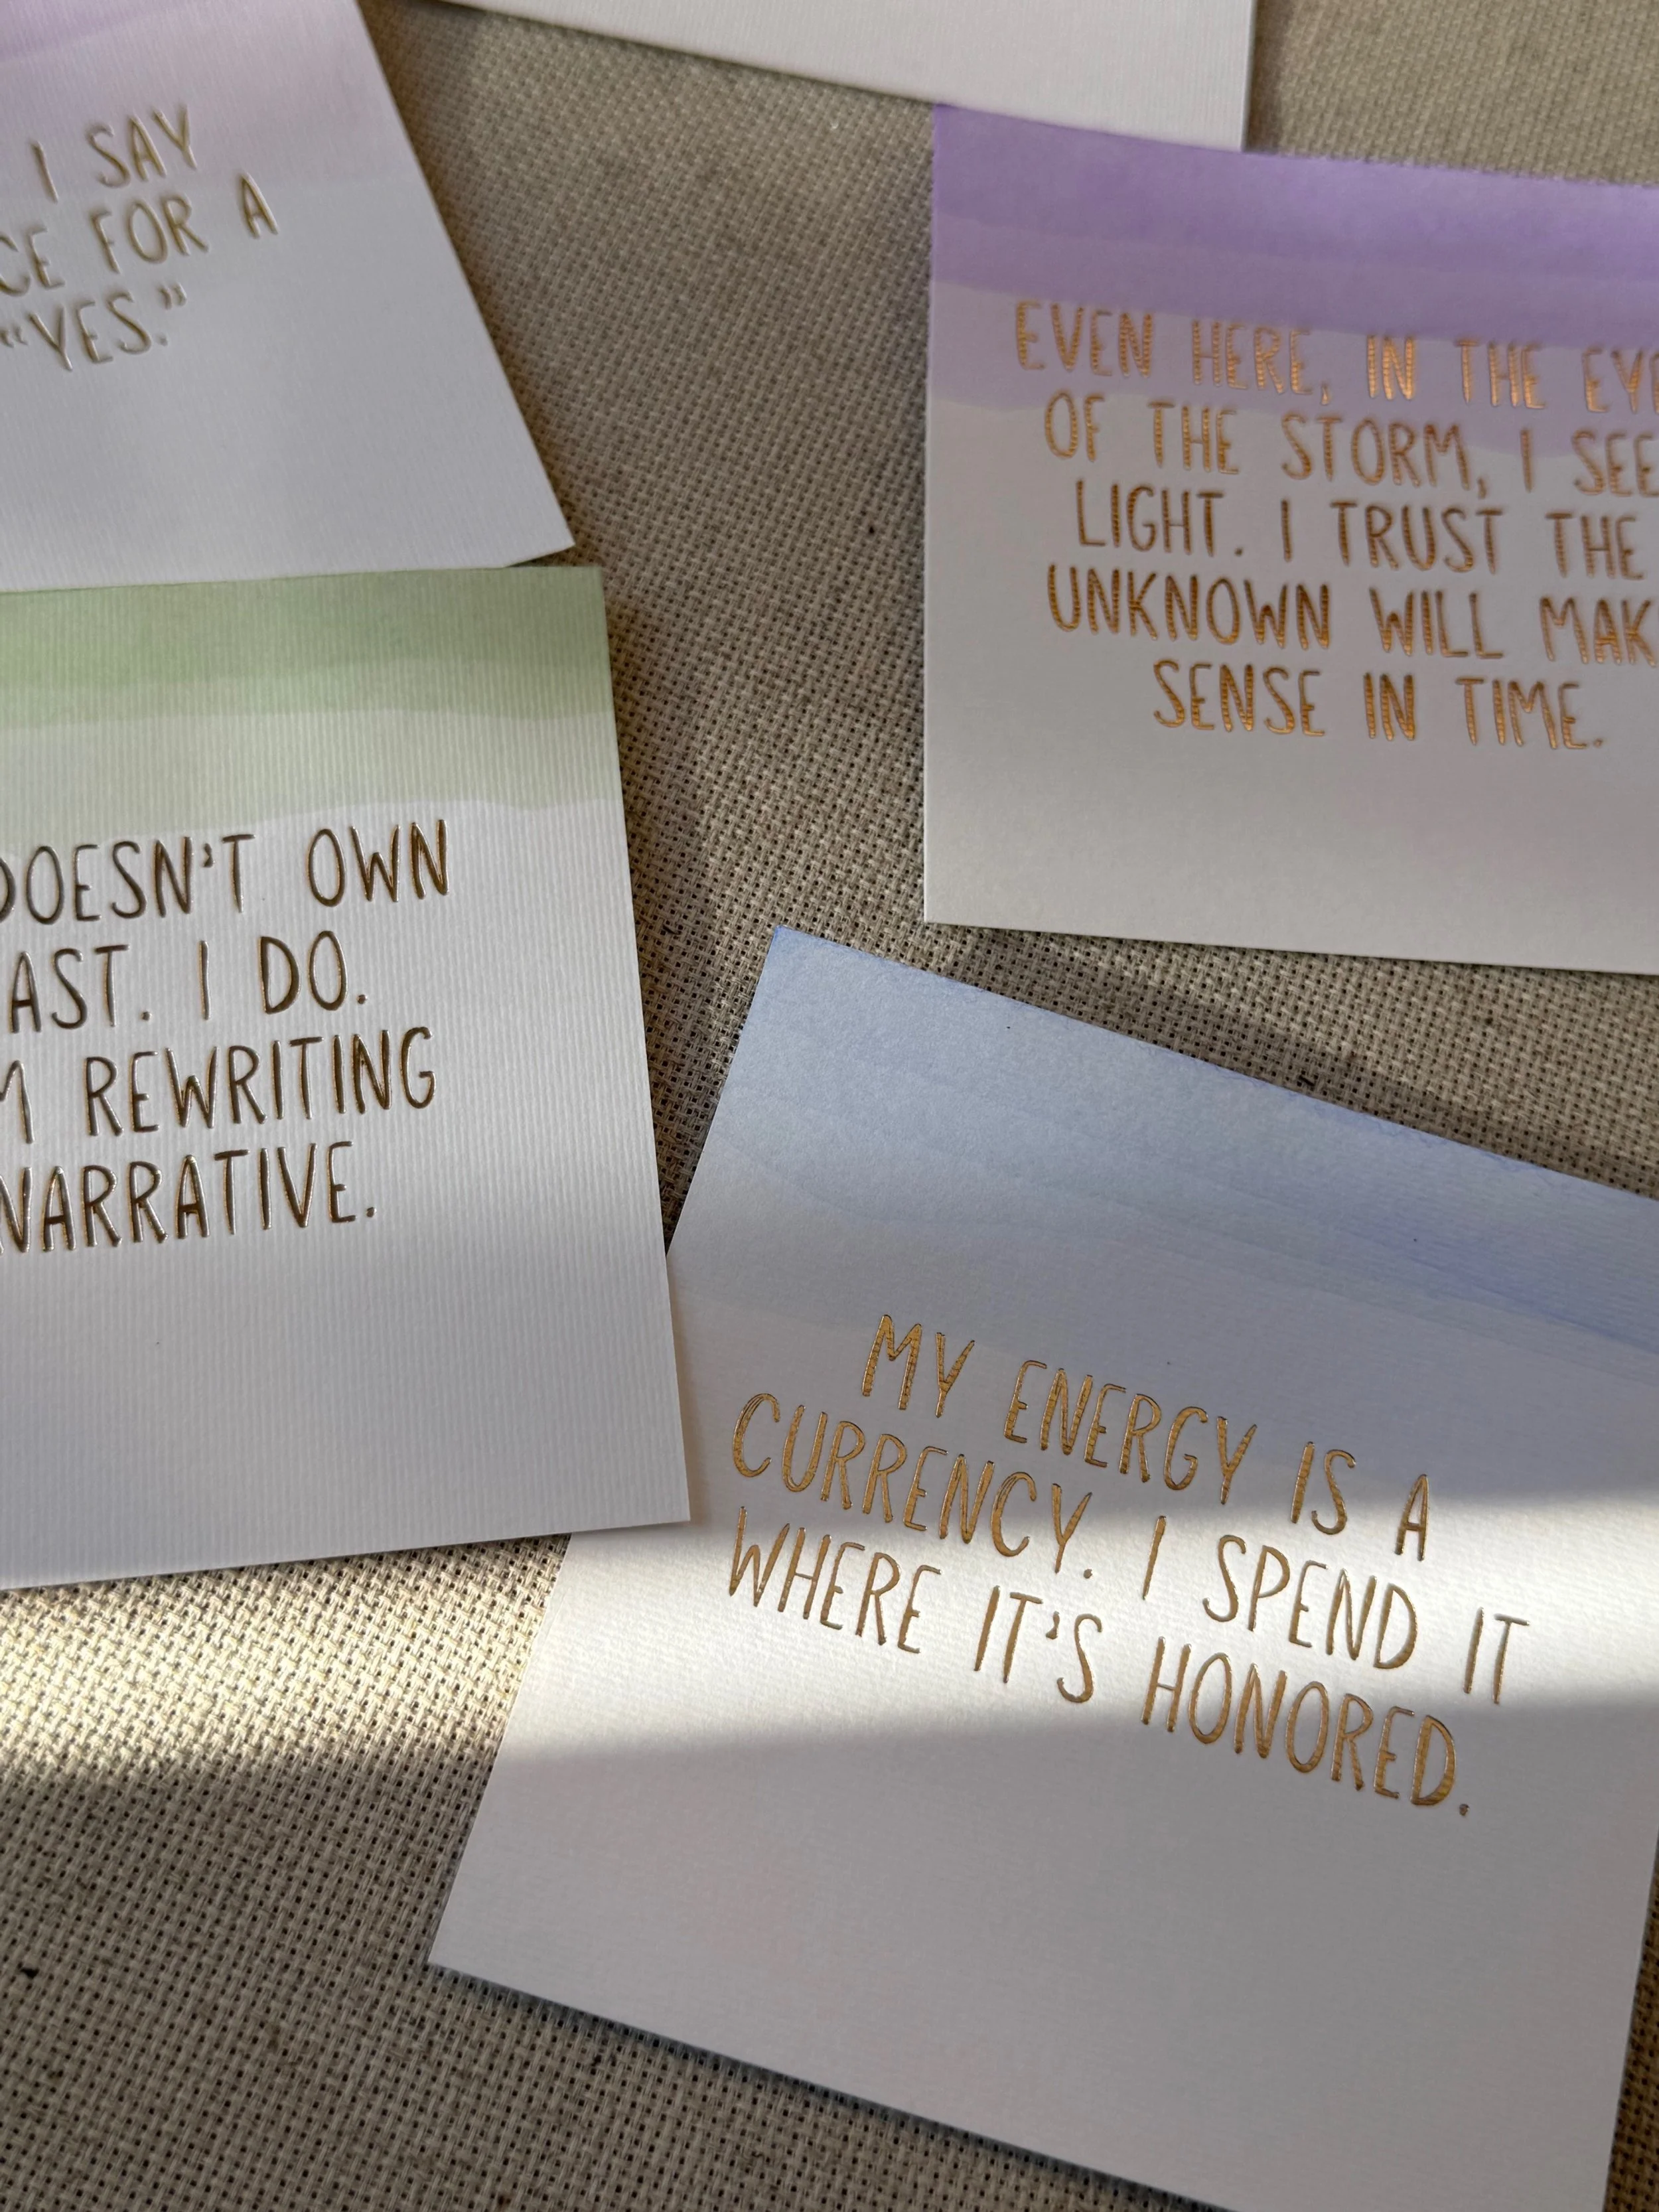 I SAY
FOR A
“YES.”
EVEN HERE, IN THE EYE
OF THE STORM, I SEE
LIGHT. I TRUST THE
UNKNOWN WILL MAKE
SENSE IN TIME.
DOESN'T OWN
I DO.
REWRITING
NARRATIVE.
MY ENERGY IS A
CURRENCY. I SPEND IT
WHERE IT'S HONORED.